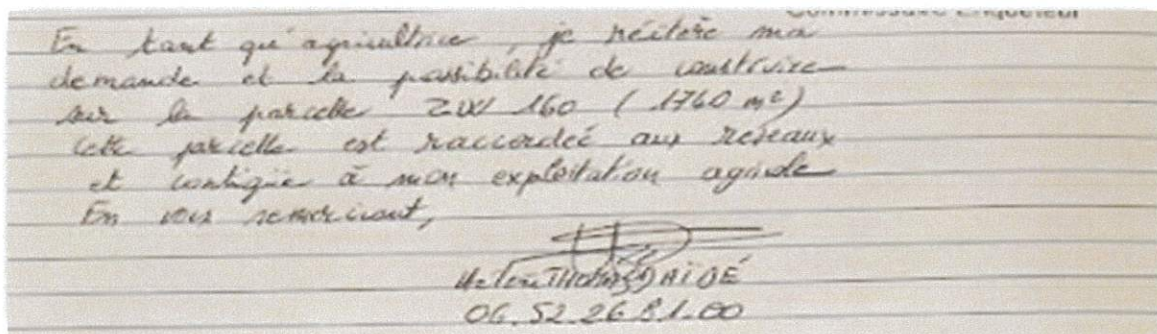 Commissaire Enquêteur
En tant qu'agricultrice, je réitère ma
demande et la possibilité de construire
sur la parcelle ZW 160 (1760 m²)
Cette parcelle est raccordée aux réseaux
et contigüe à mon exploitation agricole
En vous remerciant,
THOMAS DAIDÉ
06.52.26.81.00